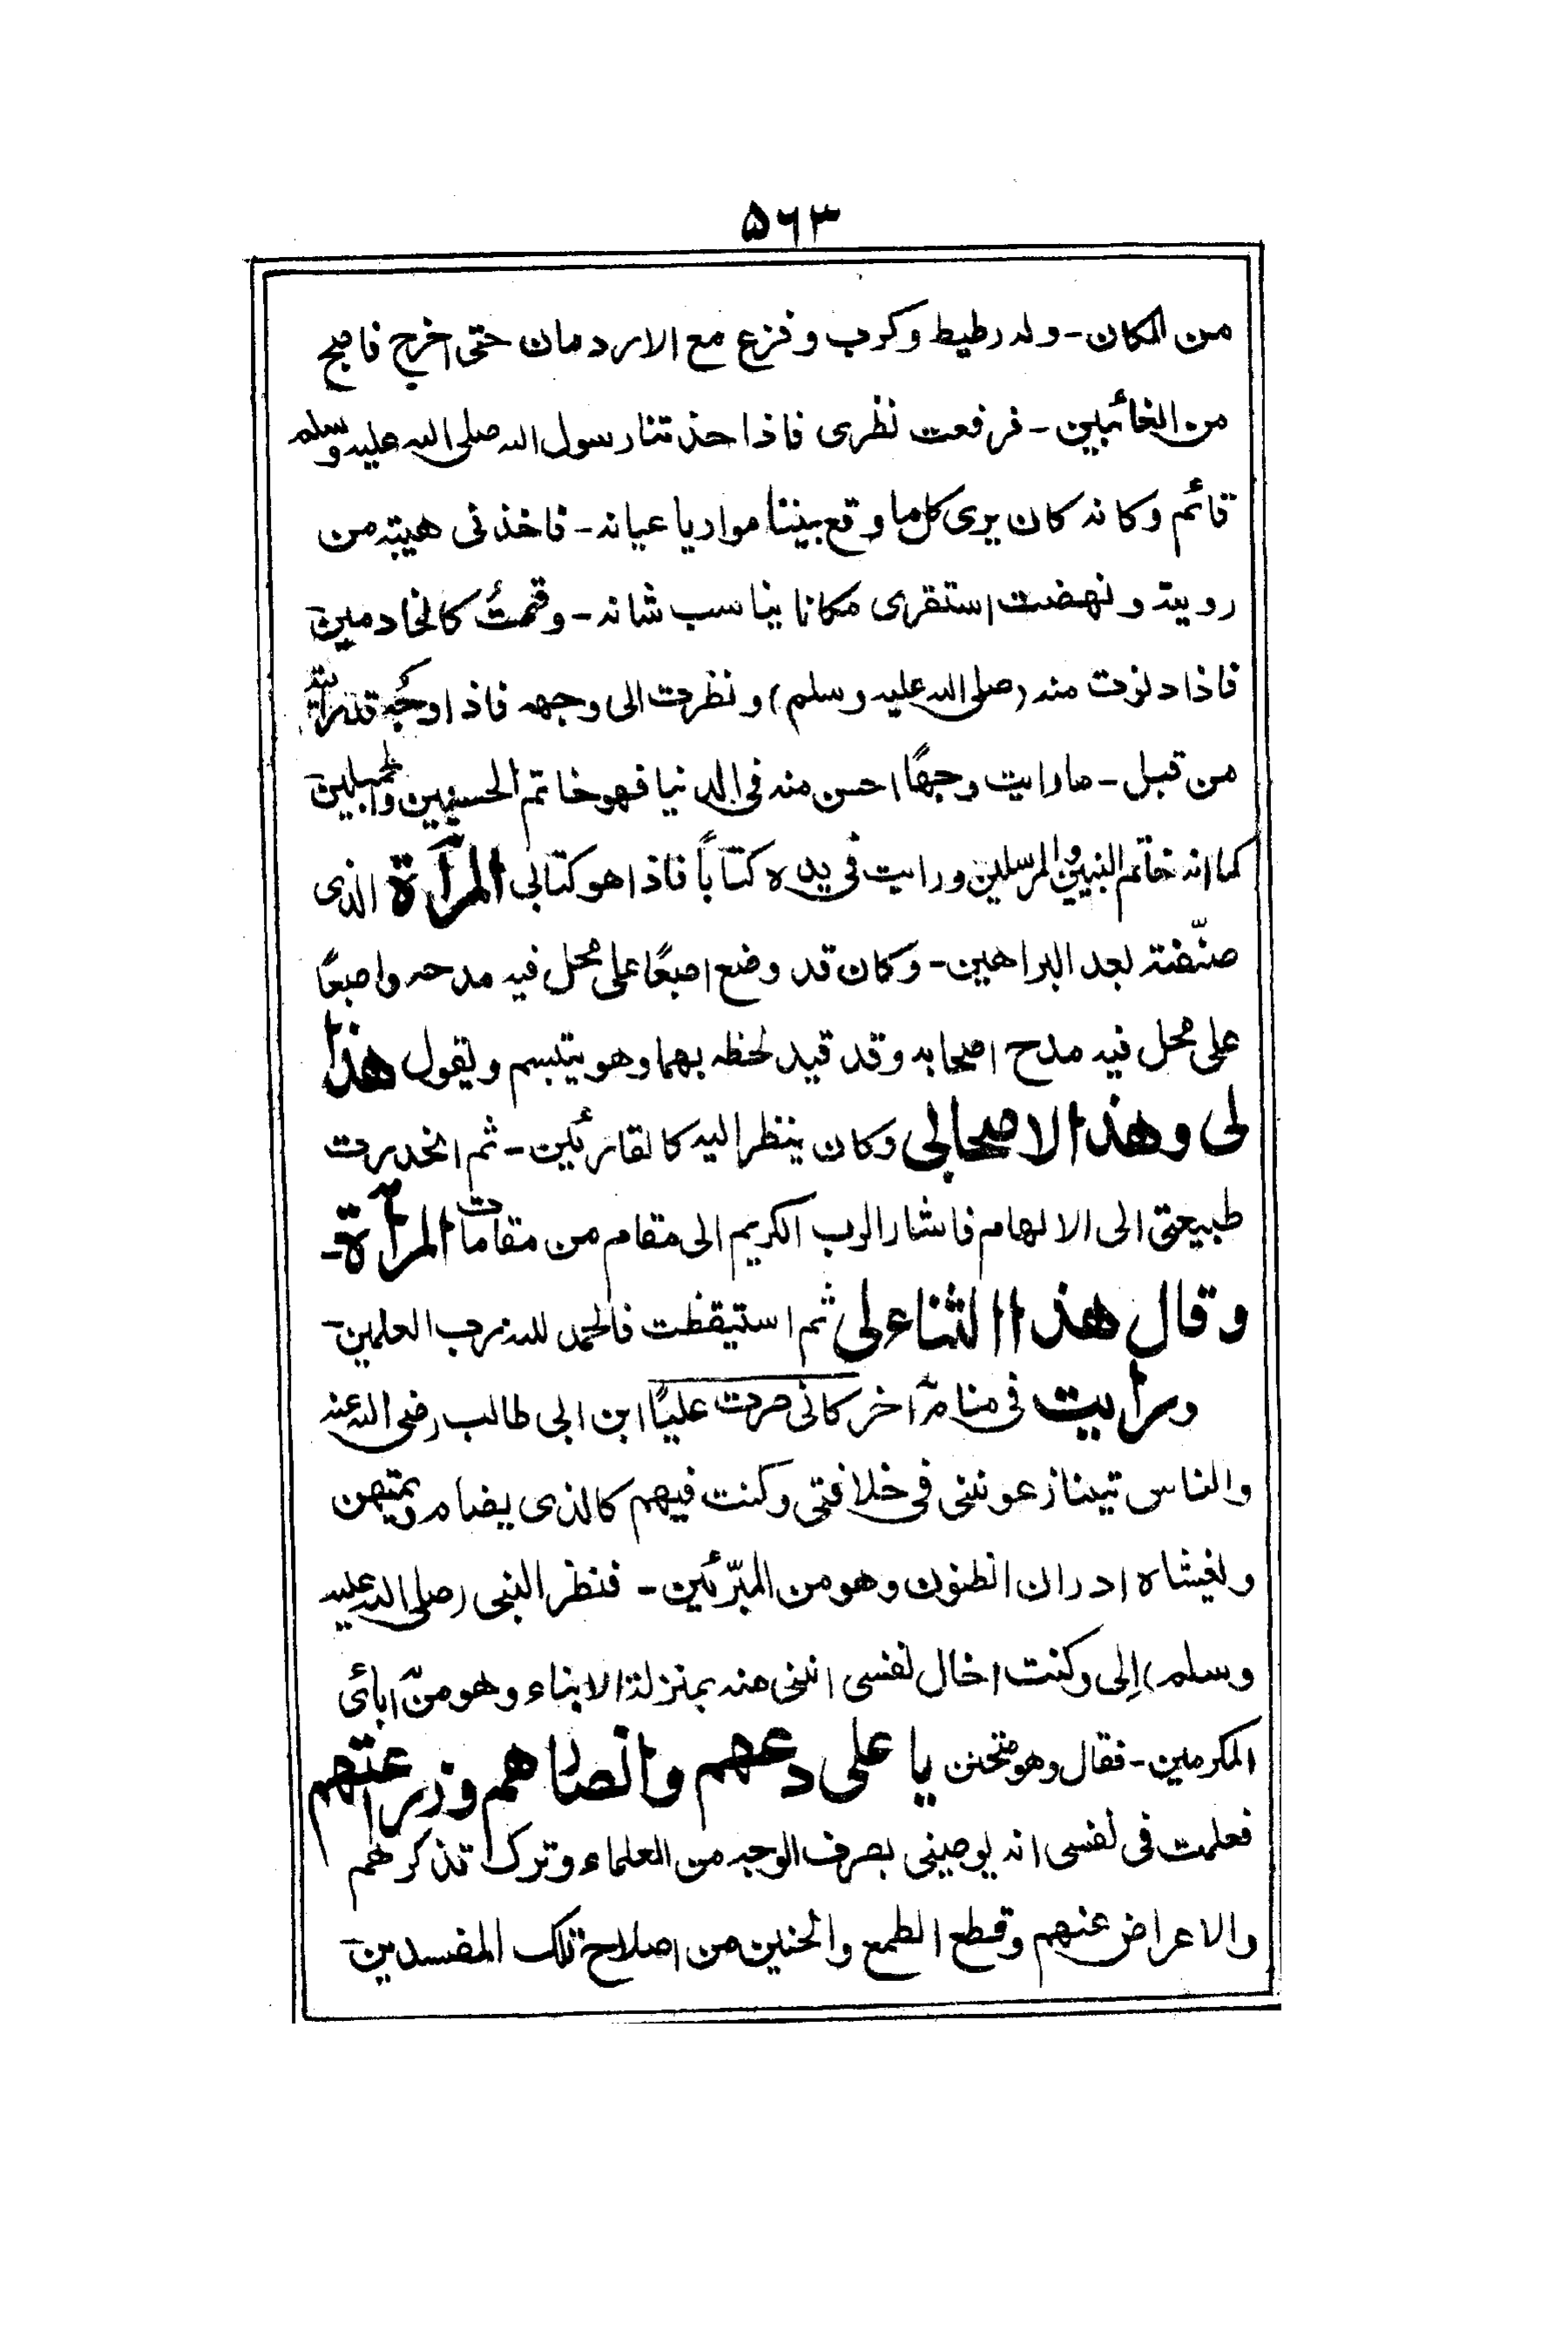 ۵۶۳
من المكان - وله رطيط وكرب وفزع مع الاردمان حتى اخرج فاصبح
من الغائبين - فرفعت نظرى فاذا حذتنا رسول الله صلى الله عليه وسلم
قائم وكانه كان يرى كل ما وقع بيننا مواريا عيانه - فاخذنى هيبة من
رويته ونهضت استقرى مكانا يناسب شانه - وقمتُ كالخادمين
فاذا دنوت منه (صلى الله عليه وسلم) ونظرت الى وجهه فاذا وجهُه قد رأيته
من قبل - ما رايت وجهًا احسن منه فى الدنيا فهو خاتم الحسينين والجميلين
كما انه خاتم النبيين والمرسلين ورايت فى يده كتابًا فاذا هو كتابى المرآة الذى
صنّفته بعد البراهين - وكان قد وضع اصبعًا على محل فيه مدحه واصبعًا
على محل فيه مدح اصحابه وقد قيد لحظه بهما وهو يتبسم ويقول هذا
لى وهذا لاصحابى وكان ينظر اليه كالقارئين - ثم انحدرت
طبيعتى الى الالهام فاشار الرب الكريم الى مقام من مقامات المرآة -
وقال هذا الثناء لى ثم استيقظت فالحمد لله رب العلمين -
ورايت فى منام آخر كانى صرت عليًّا ابن ابى طالب رضى الله عنه
والناس يتنازعوننى فى خلافتى وكنت فيهم كالذى يضام ويمتهن
ويغشاه ادران الظنون وهو من المبرّئين - فنظر النبى (صلى الله عليه
وسلم) اِلى وكنت اخال نفسى اننى منه بمنزلة الابناء وهو من آبائى
المكرمين - فقال وهو متحنن يا على دعهم وانصارهم وزراعتهم
فعلمت فى نفسى انه يوصينى بصرف الوجه من العلماء وترك تذكرهم
والاعراض عنهم وقطع الطمع والحنين من اصلاح تلك المفسدين -